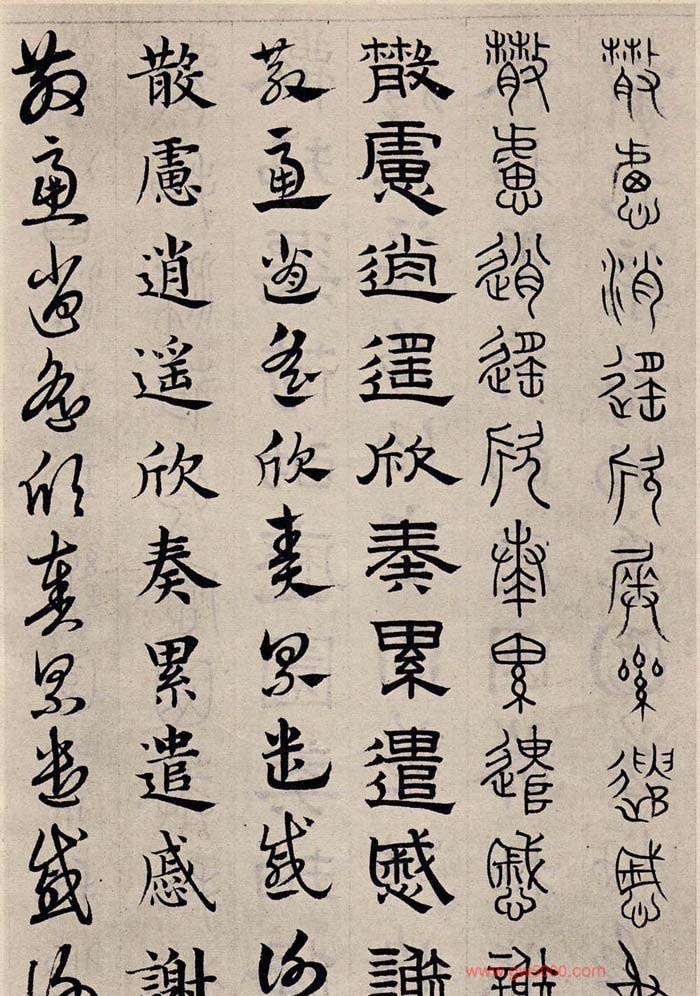 散慮消遙欣奏累遣慼
散慮逍遙欣奏累遣慼謝
散慮逍遙欣奏累遣慼謝
散慮逍遙欣奏累遣慼謝
散慮逍遥欣奏累遣慼謝
散慮逍遙欣奏累遣慼謝